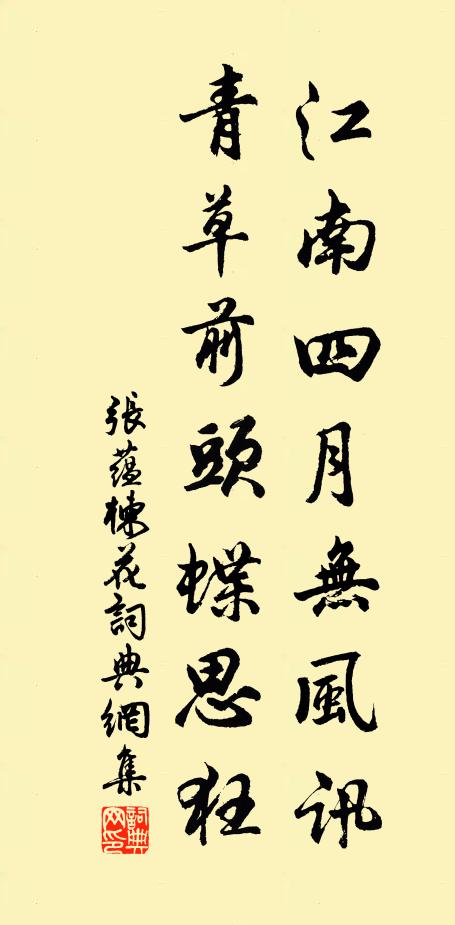 江南四月無風訊
青草前頭蝶思狂
張蘊楝花詞典網集
詞典网印